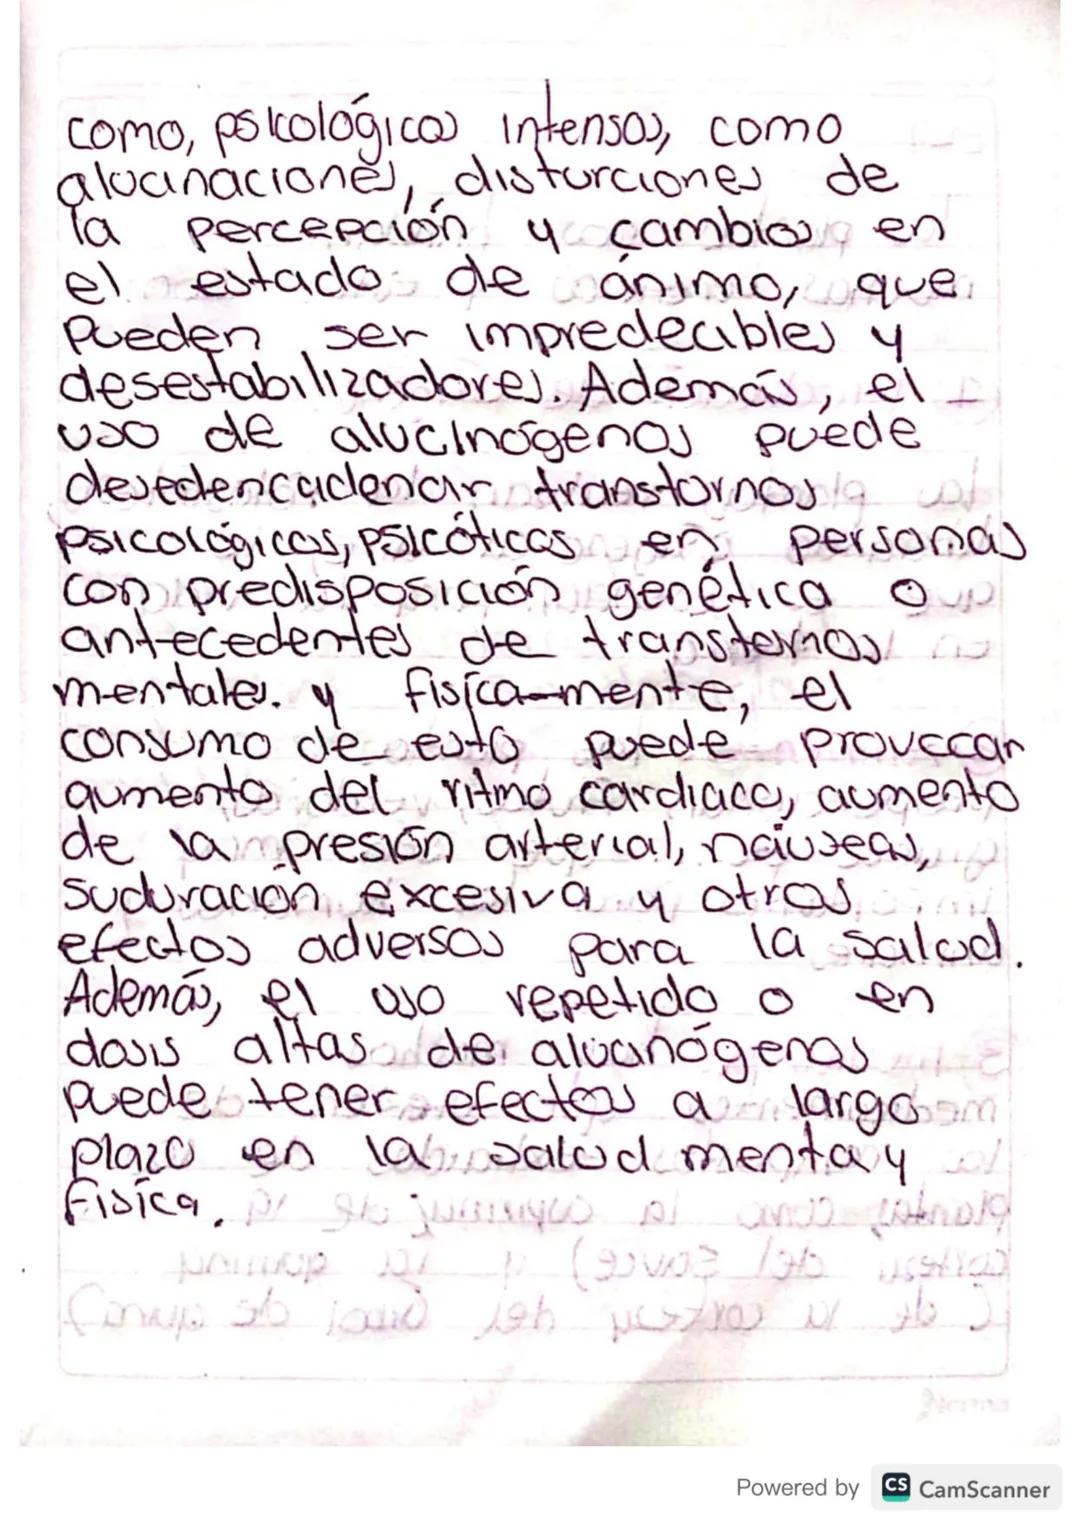 como, psicológicos intensos, como
alucinaciones, disturciones de
la percepción y cambios en
el estado de ánimo, que
pueden ser impredecibles y
desestabilizadores. Además, el
uso de alucinógenos puede
desedencadenar transtornos
psicológicos, psicóticos en personas
con predisposición genética o
antecedentes de transternos
mentales. y física-mente, el
consumo de esto puede provocar
aumento del ritmo cardiaco, aumento
de la presión arterial, náuseas,
suduración excesiva y otros
efectos adversos para la salud.
Además, el uso repetido o en
dosis altas de alucinógenos
puede tener efectos a largo
plazo en la salud menta y
física.
Powered by CS CamScanner